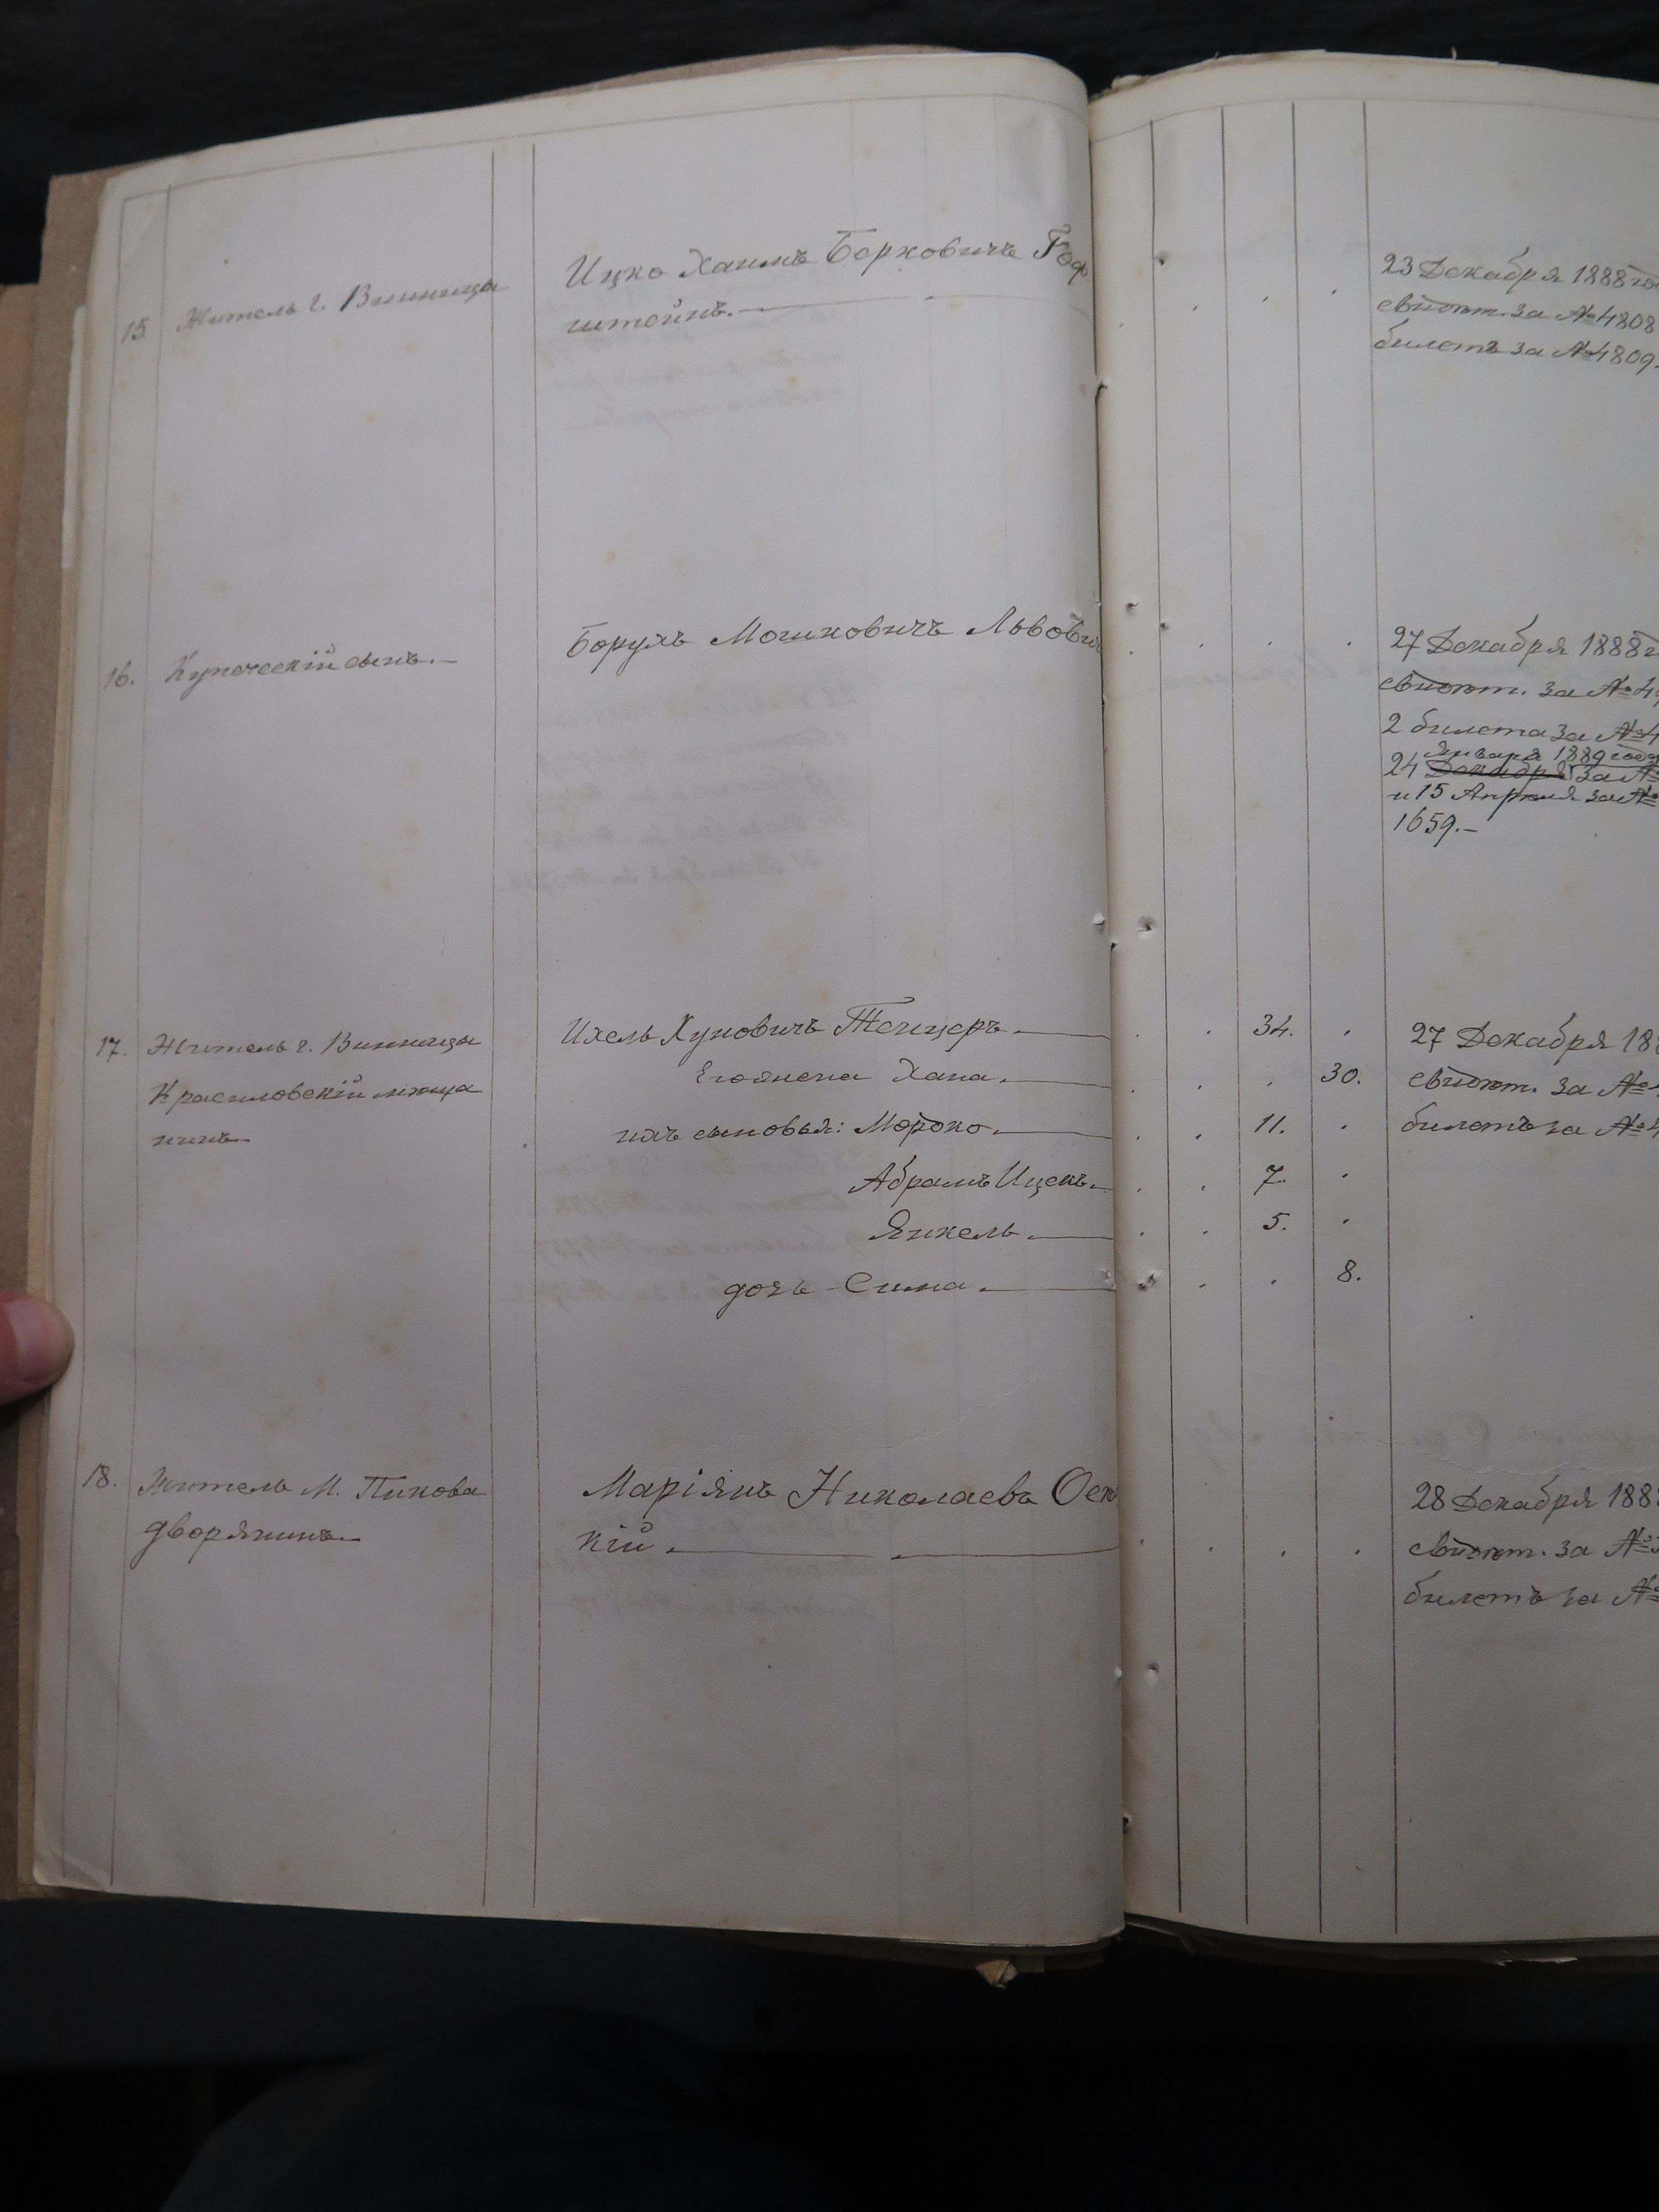 15 Житель г. Винницы
Ицко Хаимъ Берковичъ Гоф
штейнъ.
23 Декабря 1888 го
свидѣт. за № 4808
билетъ за № 4809.
16. Купеческій сынъ.
Борухъ Мошковичъ Львови
27 Декабря 1888 г
свидѣт. за № 4
2 билета за № 4
Января 1889 года
24 Декабря за №
и 15 Апрѣля за №
1659.
17. Житель г. Винницы
Красиловскій мѣща
нинъ
Ихель Хуновичъ Тенцеръ. 34.
Его жена Хана. 30.
ихъ сыновья: Мордко. 11.
Абрамъ Ицекъ. 7.
Янкель. 5.
дочь Сима. 8.
27 Декабря 188
свидѣт. за №
билетъ за № 4
18. Житель М. Пикова
дворянинъ
Маріянъ Николаевъ
кій.
28 Декабря 188
свидѣт. за №
билетъ за №